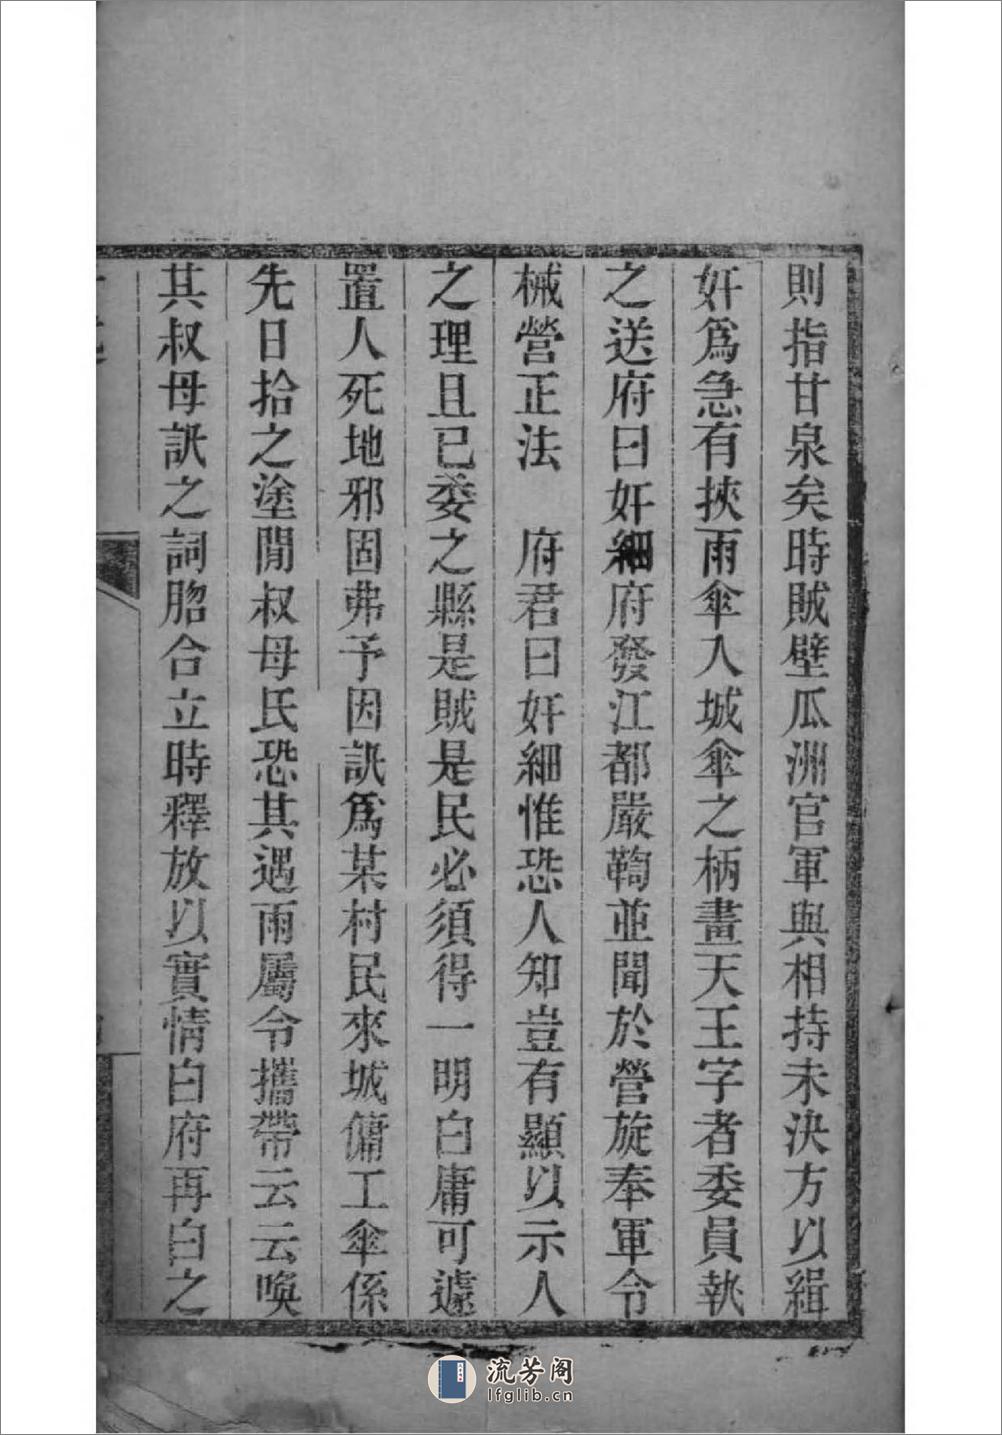 則指甘泉矣時賊壁瓜洲官軍與相持未決方以緝
奸爲急有挾雨傘入城傘之柄畫天王字者委員執
之送府曰奸細府發江都嚴鞫並聞於營旋奉軍令
械營正法　府君曰奸細惟恐人知豈有顯以示人
之理且已委之縣是賊是民必須得一明白庸可遽
置人死地邪固弗予因訊爲某村民來城傭工傘係
先日拾之塗閒叔母氏恐其遇雨屬令攜帶云云喚
其叔母訊之詞脗合立時釋放以實情白府再白之
流芳阁
lfglib.cn